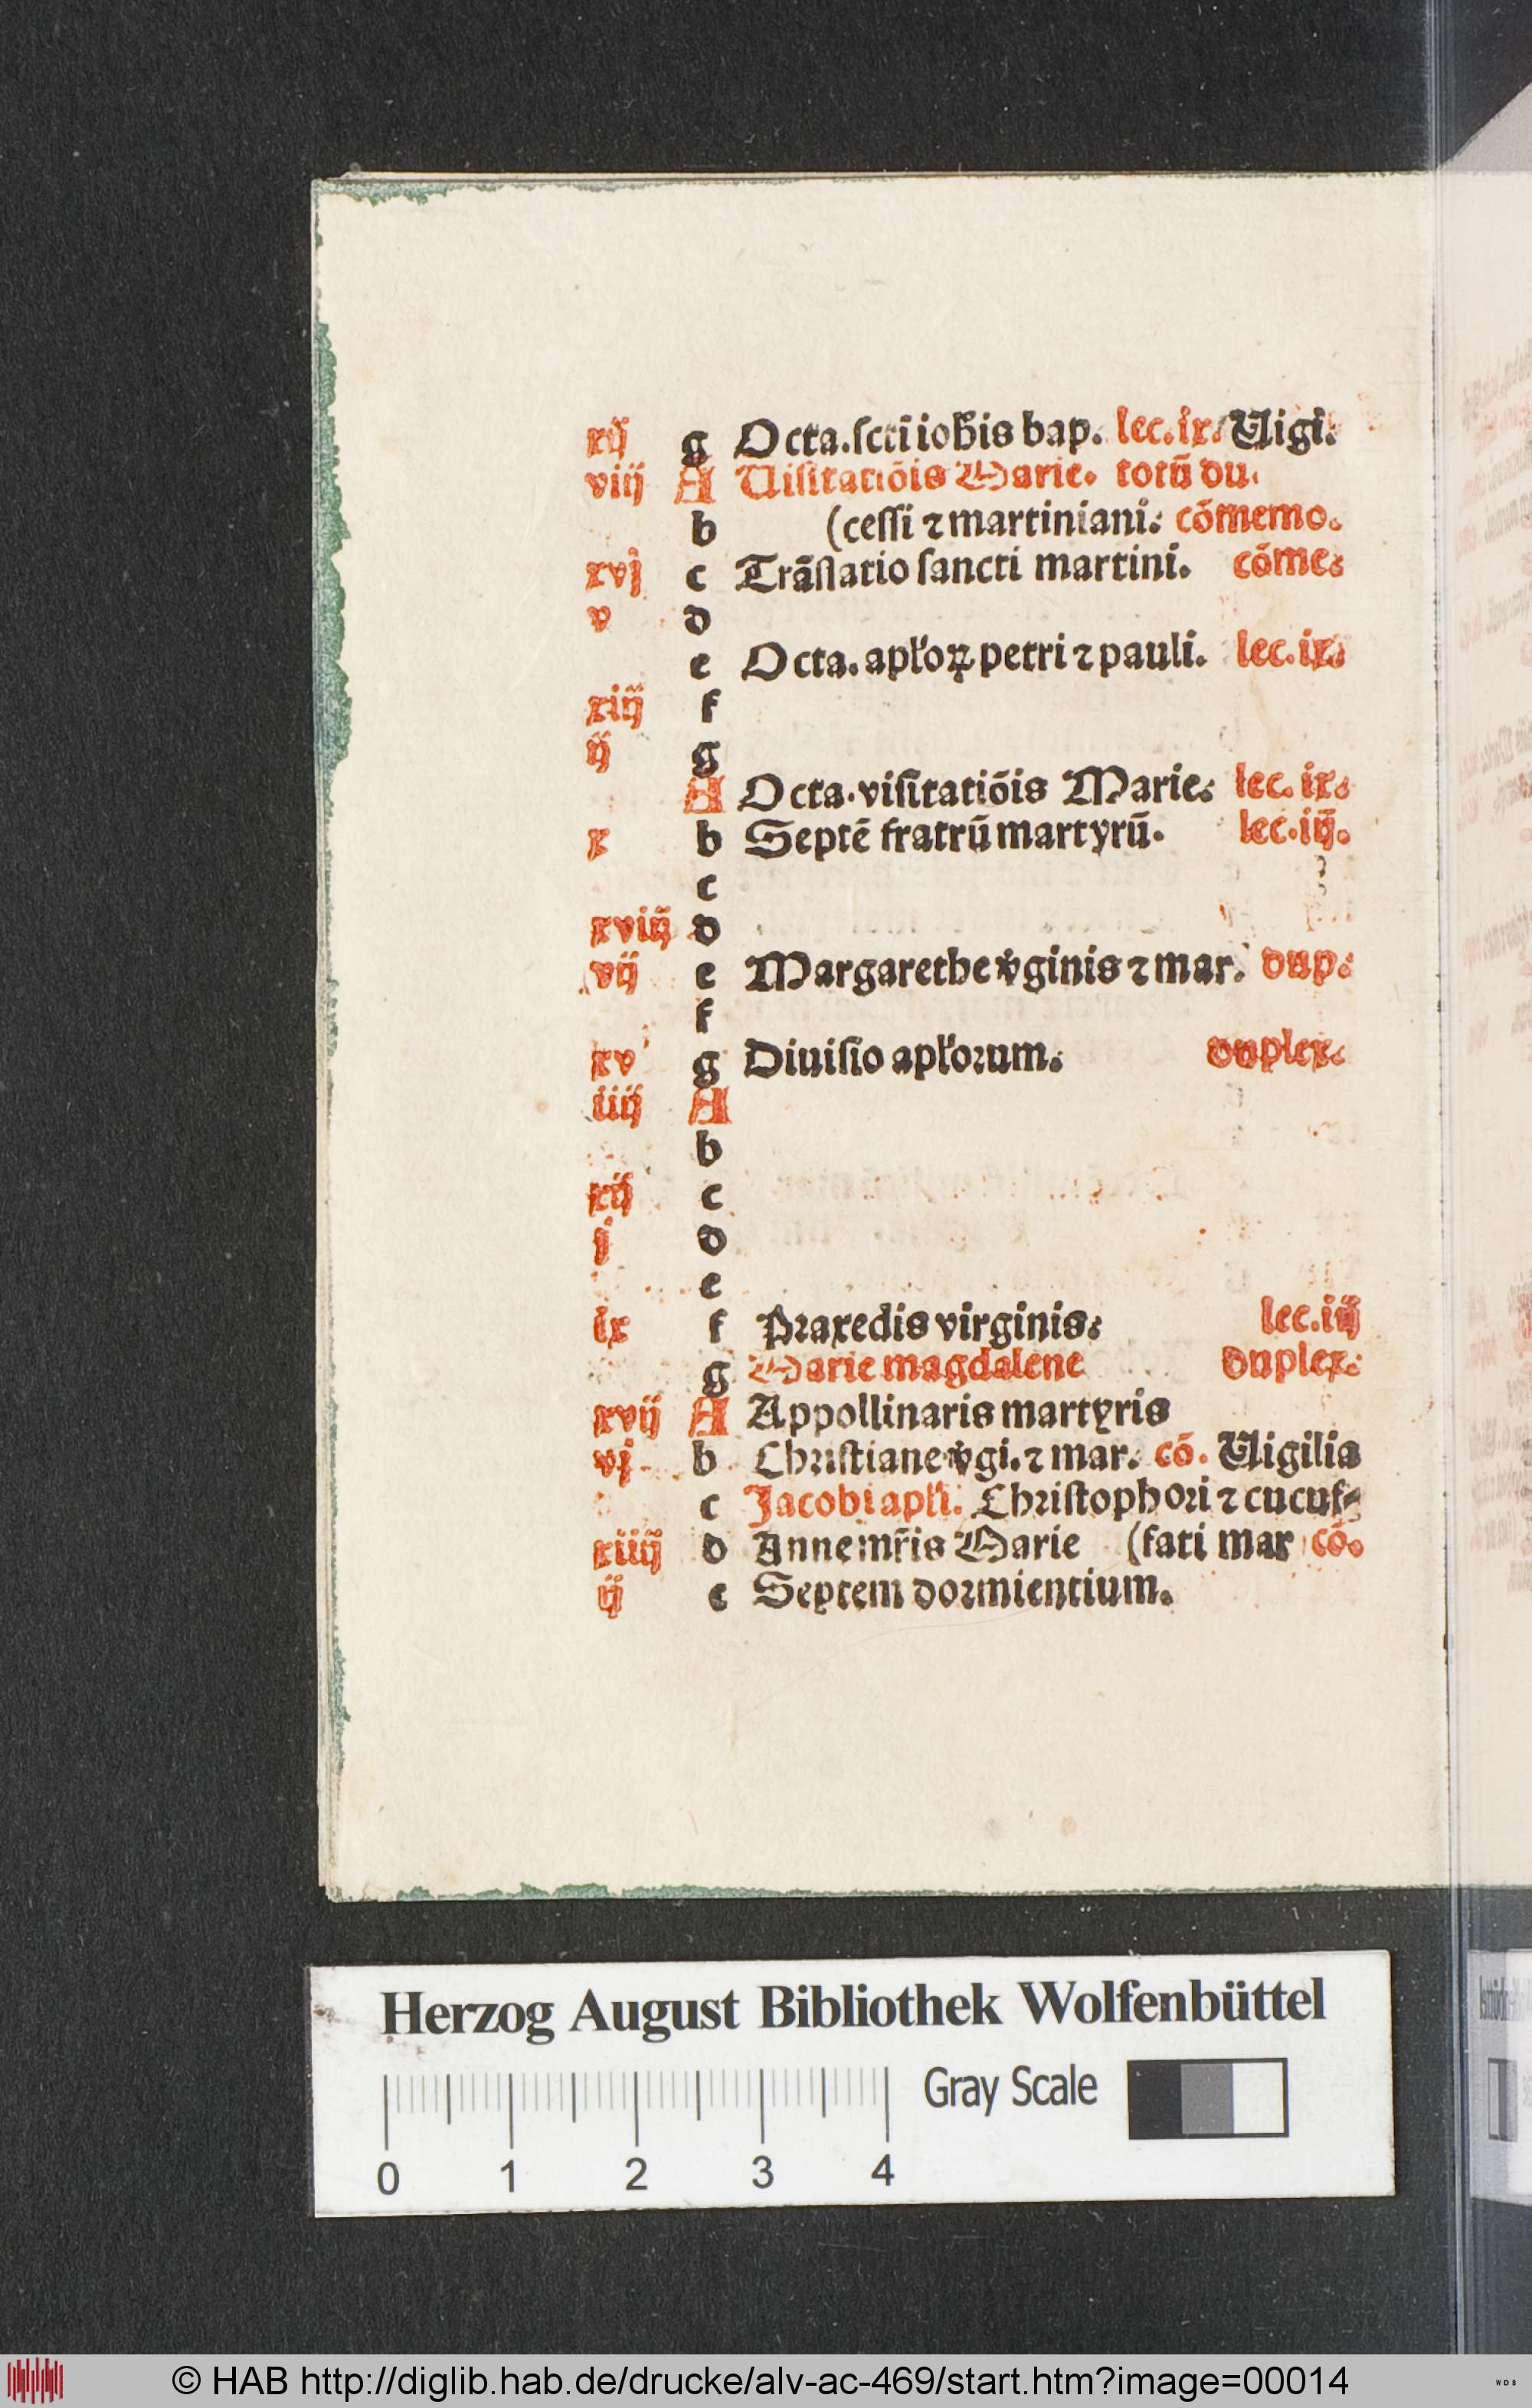 xij g Octa. scti ioh̄is bap. lec. ix. Uigi.
viij A Uisitatiōis Marie. totū du.
b (cessi ⁊ martiniani. cōmemo.
xvj c Trāslatio sancti martini. cōme.
v d
e Octa. apl'oꝝ petri ⁊ pauli. lec. ix.
xiij f
ij g
A Octa. visitatiōis Marie. lec. ix.
x b Septē fratrū martyrū. lec. iij.
c
xviij d
vij e Margarethe v̾ginis ⁊ mar. dup.
f
xv g Diuisio apl'orum. duplex.
iiij A
b
xij c
j d
e
ix f Praxedis virginis. lec. iij
g Marie magdalene duplex.
xvij A Appollinaris martyris
vj b Christiane v̾gi. ⁊ mar. cō. Uigilia
c Jacobi apl'i. Christophori ⁊ cucuf⸗
xiiij d Anne mr̄is Marie (fati mar cō.
ij e Septem dormientium.
Herzog August Bibliothek Wolfenbüttel
Gray Scale
0 1 2 3 4
© HAB http://diglib.hab.de/drucke/alv-ac-469/start.htm?image=00014
WDB